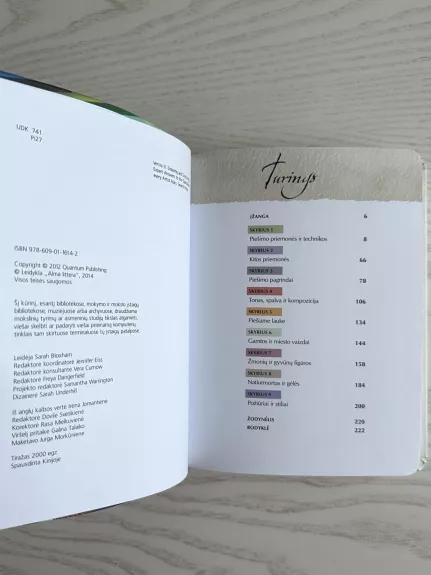 UDK 741
Pi27
ISBN 978-609-01-1614-2
Copyright © 2012 Quantum Publishing
© Leidykla „Alma littera“, 2014
Visos teisės saugomos
Šį kūrinį, esantį bibliotekose, mokymo ir mokslo įstaigų
bibliotekose, muziejuose arba archyvuose, draudžiama
mokslinių tyrimų ar asmeninių studijų tikslais atgaminti,
viešai skelbti ar padaryti viešai prieinamą kompiuterių
tinklais tam skirtuose terminaluose tų įstaigų patalpose.
Leidėja Sarah Bloxham
Redaktorė koordinatorė Jennifer Eiss
Redaktorė konsultantė Vera Curnow
Redaktorė Freya Dangerfield
Projekto redaktorė Samantha Warrington
Dizainerė Sarah Underhill
Iš anglų kalbos vertė Irena Jomantienė
Redaktorė Dovilė
Korektorė Rasa Milkuvienė
Viršelį pritaikė Galina Talaiko
Maketavo Jurga Morkūnienė
Tiražas 2000 egz.
Spausdinta Kinijoje
Turinys
ĮŽANGA 6
SKYRIUS 1
Piešimo priemonės ir technikos 8
SKYRIUS 2
Kitos priemonės 66
SKYRIUS 3
Piešimo pagrindai 78
SKYRIUS 4
Tonas, spalva ir kompozicija 106
SKYRIUS 5
Piešiame lauke 134
SKYRIUS 6
Gamtos ir miesto vaizdai 144
SKYRIUS 7
Žmonių ir gyvūnų figūros 158
SKYRIUS 8
Natiurmortas ir gėlės 184
SKYRIUS 9
Požiūriai ir stiliai 200
ŽODYNĖLIS 220
RODYKLĖ 222